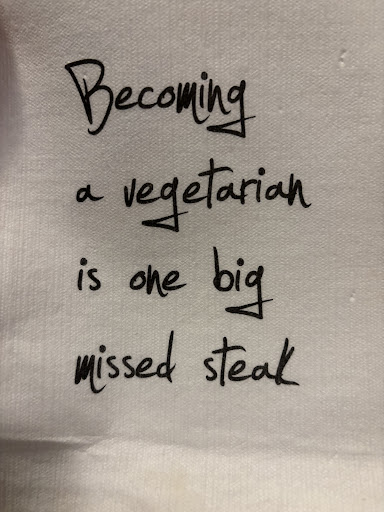 Becoming
a vegetarian
is one big
missed steak